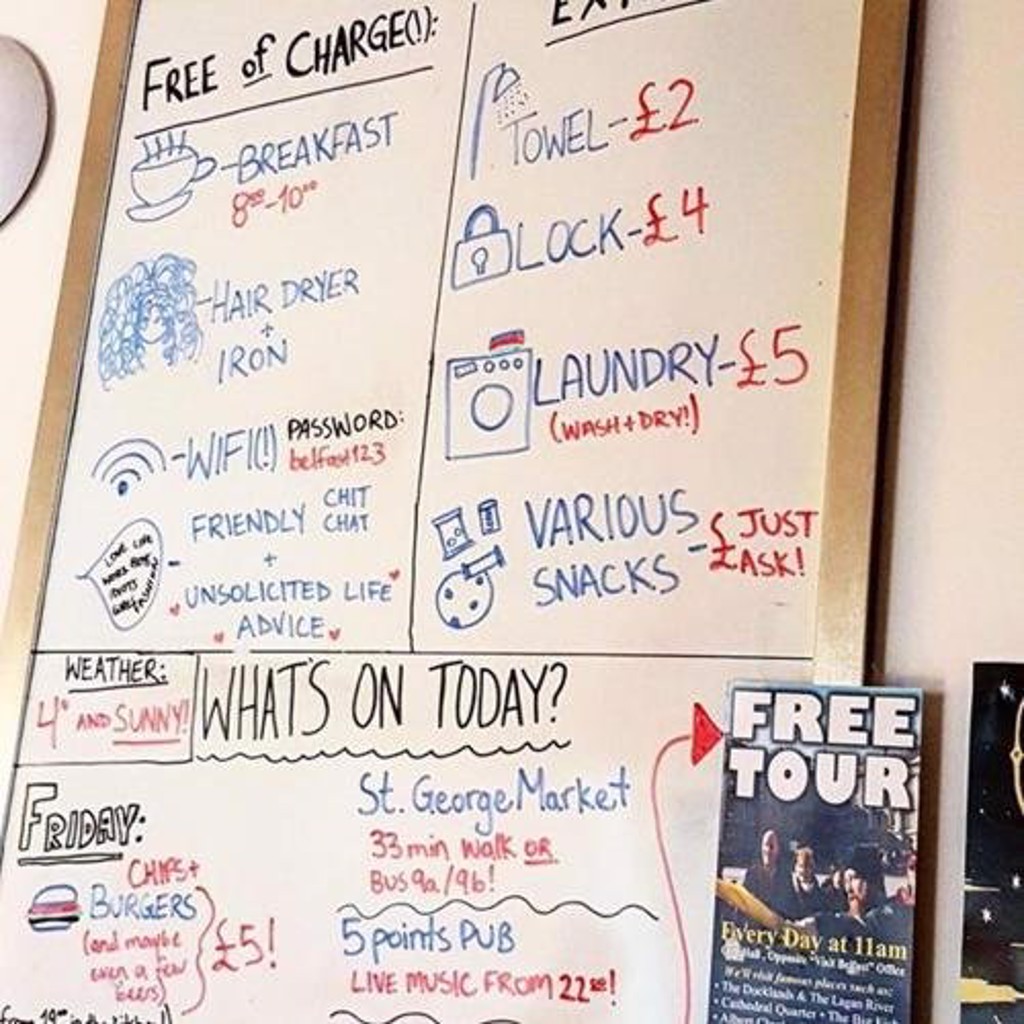 FREE of CHARGE(!):
BREAKFAST
8⁰⁰-10⁰⁰
-HAIR DRYER
+
IRON
-WIFI(!) PASSWORD:
belfast123
LOVE LIFE
- FRIENDLY CHIT CHAT
+
UNSOLICITED LIFE
ADVICE
TOWEL-£2
LOCK-£4
LAUNDRY-£5
(WASH+DRY!)
VARIOUS
SNACKS - £JUST ASK!
WEATHER:
4° AND SUNNY!
WHAT'S ON TODAY?
FRIDAY:
CHIPS+
BURGERS
(and maybe
even a few
beers)
£5!
St. George Market
33 min walk OR
BUS 9a/9b!
5 points PUB
LIVE MUSIC FROM 22⁰⁰!
FREE
TOUR
Every Day at 11am
Opposite "Visit Belfast" Office
We'll visit famous places such as:
• The Docklands & The Lagan River
• Cathedral Quarter • The Big
• Albert